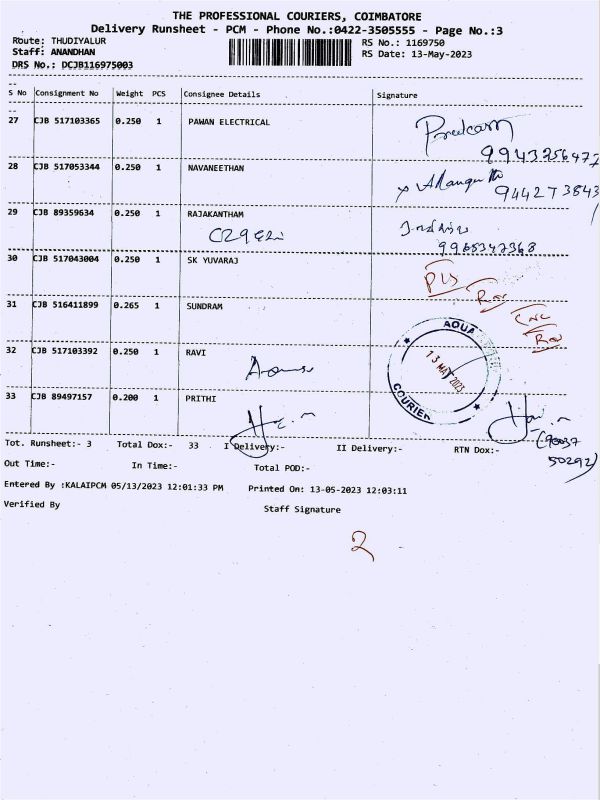 THE PROFESSIONAL COURIERS, COIMBATORE
Delivery Runsheet - PCM - Phone No.:0422-3505555 - Page No.:3
Route: THUDIYALUR RS No.: 1169750
Staff: ANANDHAN RS Date: 13-May-2023
DRS No.: DCJB116975003
S No Consignment No Weight PCS Consignee Details Signature
27 CJB 517103365 0.250 1 PAWAN ELECTRICAL
28 CJB 517053344 0.250 1 NAVANEETHAN
9442738431
29 CJB 89359634 0.250 1 RAJAKANTHAM
30 CJB 517043004 0.250 1 SK YUVARAJ
Pls
31 CJB 516411899 0.265 1 SUNDRAM
32 CJB 517103392 0.250 1 RAVI
AQUA
13 MAY 2023
COURIER
33 CJB 89497157 0.200 1 PRITHI
Tot. Runsheet:- 3 Total Dox:- 33 I Delivery:- II Delivery:- RTN Dox:-
50292)
Out Time:- In Time:- Total POD:-
Entered By :KALAIPCM 05/13/2023 12:01:33 PM Printed On: 13-05-2023 12:03:11
Verified By Staff Signature
2